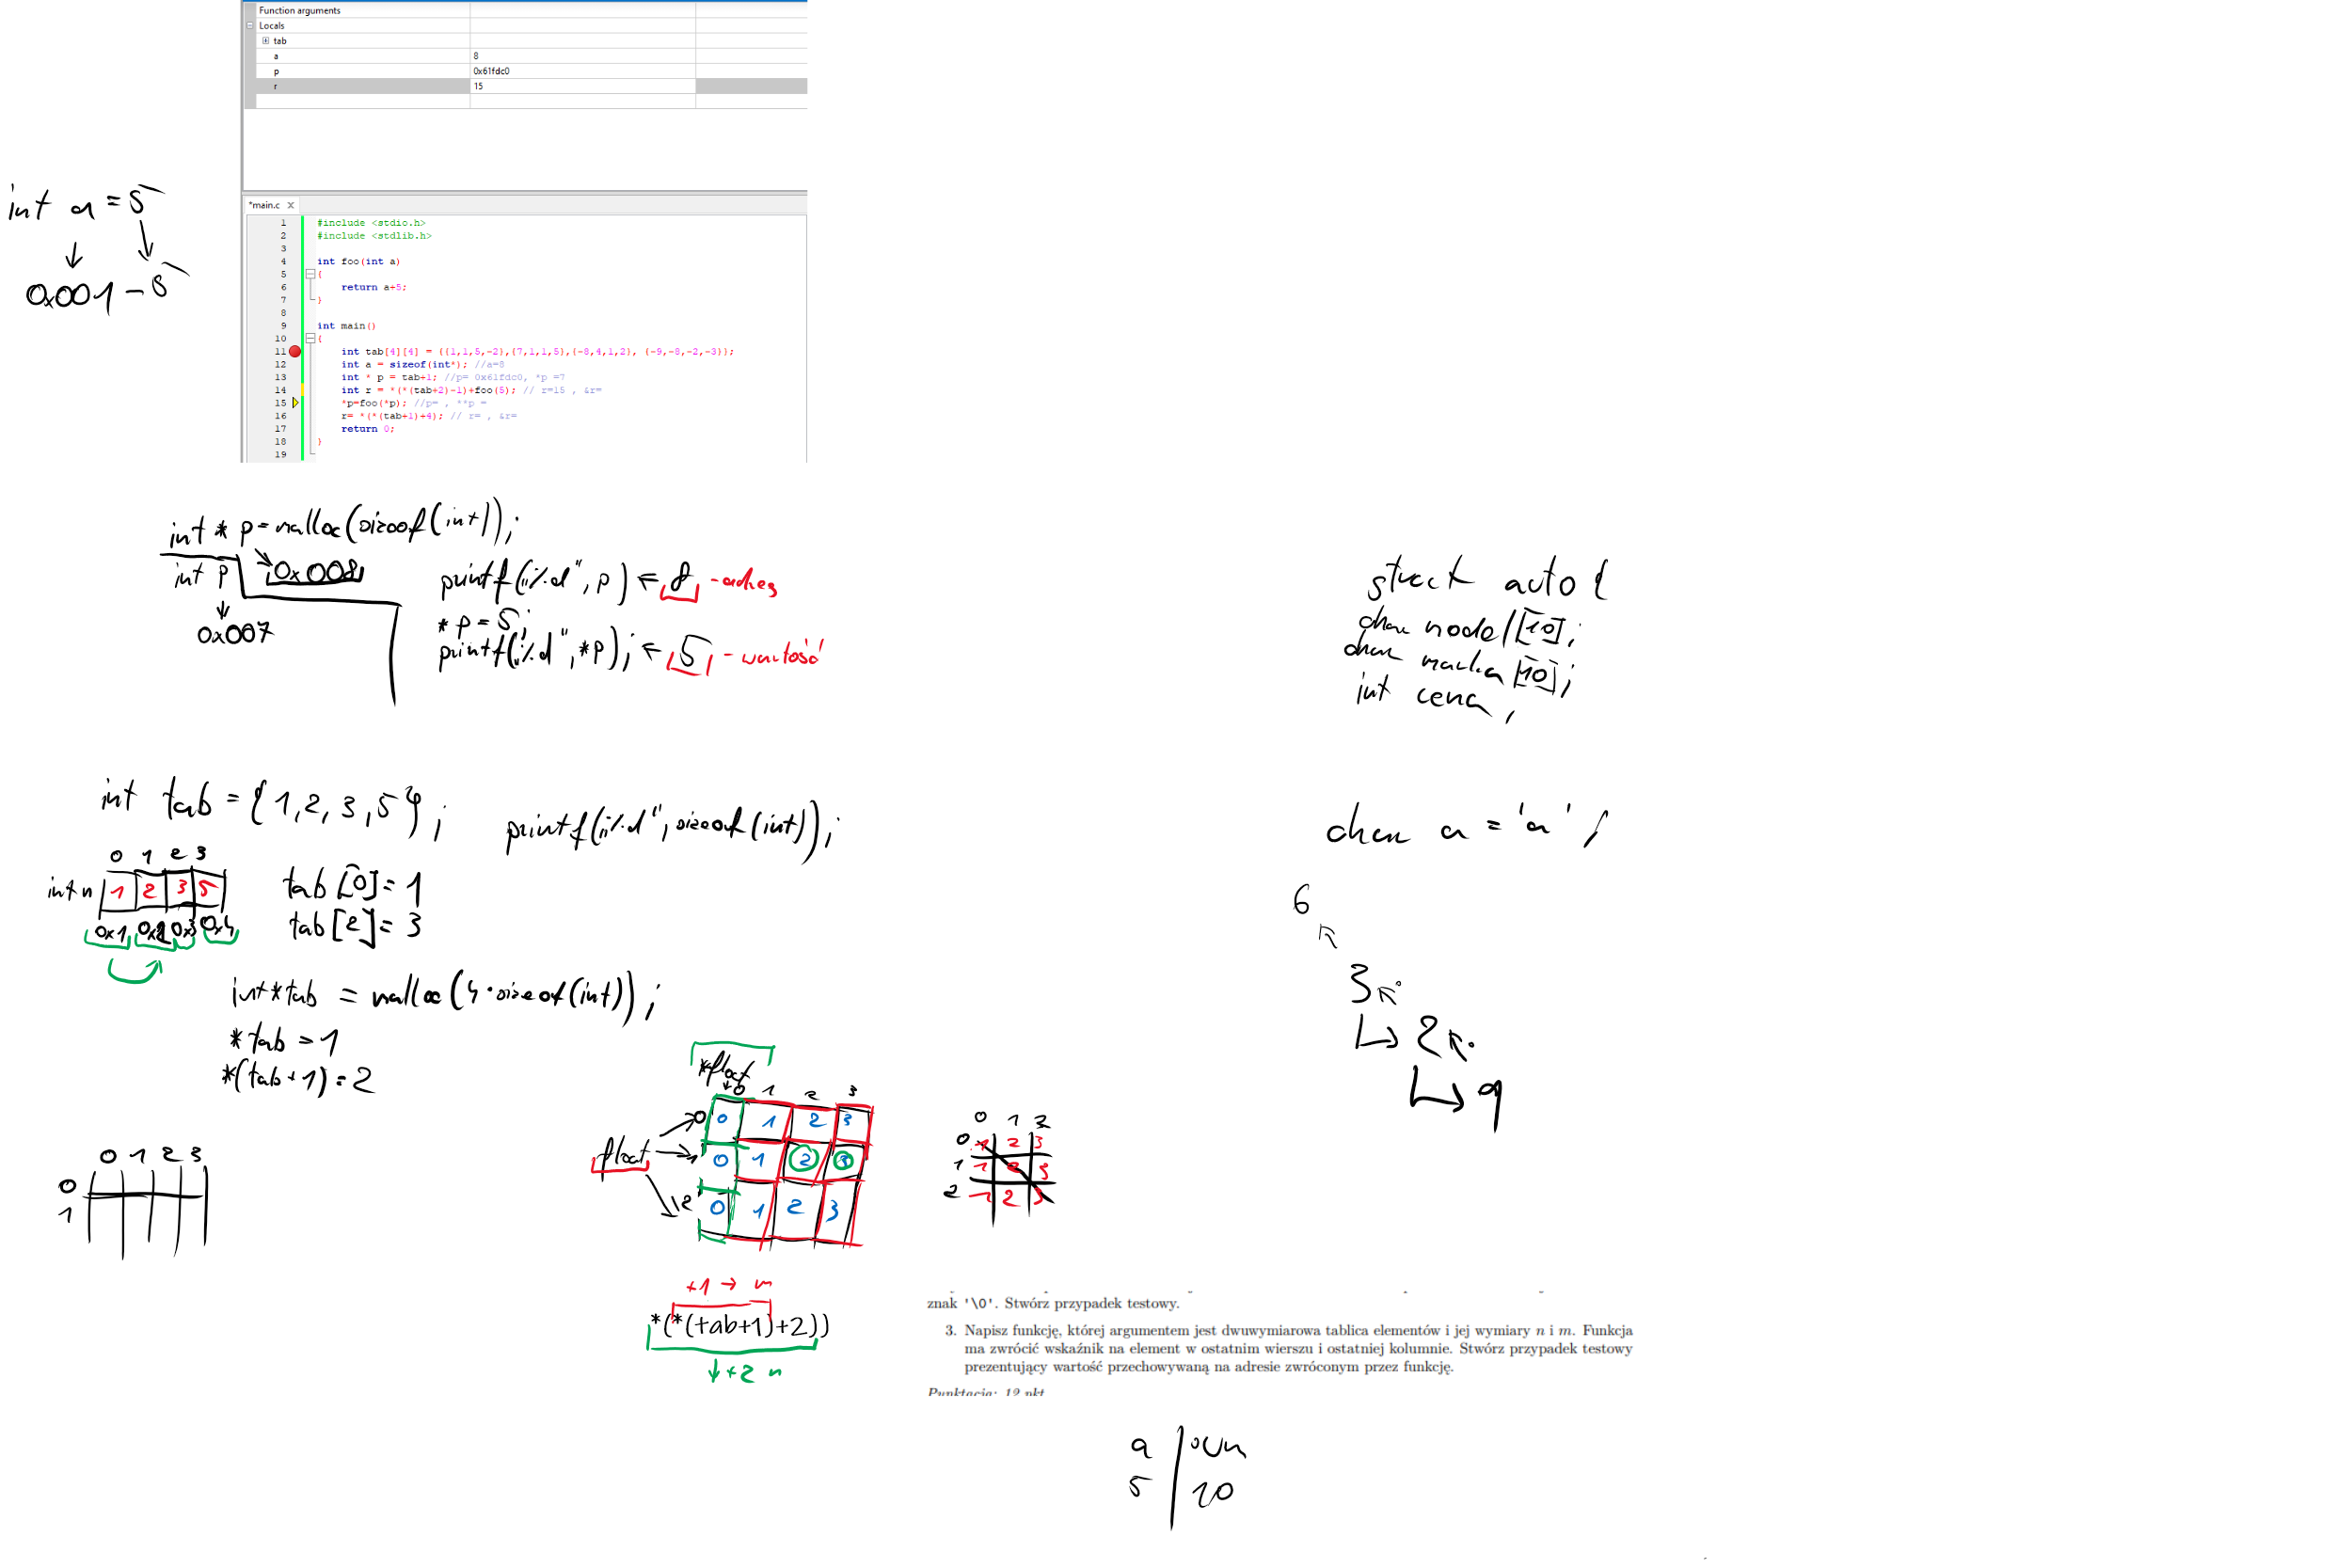 Function arguments
Locals
tab
a 8
p 0x61fdc0
r 15
*main.c X
1 #include <stdio.h>
2 #include <stdlib.h>
3
4 int foo(int a)
5 {
6 return a+5;
7 }
8
9 int main()
10 {
11 int tab[4][4] = {{1,1,5,-2},{7,1,1,5},{-8,4,1,2}, {-9,-8,-2,-3}};
12 int a = sizeof(int*); //a=8
13 int * p = tab+1; //p= 0x61fdc0, *p =7
14 int r = *(*(tab+2)-1)+foo(5); // r=15 , &r=
15 *p=foo(*p); //p= , **p =
16 r= *(*(tab+1)+4); // r= , &r=
17 return 0;
18 }
19
int a = 5
0x001 - 5
int * p = malloc(sizeof(int));
int p 0x008
0x007
printf("%d", p) ← 8 - adres
* p = 5;
printf("%d", *p); ← 5 - wartość
struct auto {
char model[10];
char marka[10];
int cena;
int tab = {1,2,3,5};
printf("%d", sizeof(int));
char a = 'a';
0 1 2 3
int n 1 2 3 5
0x1 0x2 0x3 0x4
tab[0] = 1
tab[2] = 3
int*tab = malloc(4·sizeof(int));
*tab = 1
*(tab+1) = 2
6
3
2
*float
0 1 2 3
0 0 1 2 3
float 1 0 1 2 3
2 0 1 2 3
0 1 2
0 1 2 3
1 1 2 3
2 1 2 3
0 1 2 3
0
1
+1 → m
*(*(tab+1)+2))
↓ +2 n
znak '\0'. Stwórz przypadek testowy.
3. Napisz funkcję, której argumentem jest dwuwymiarowa tablica elementów i jej wymiary n i m. Funkcja
ma zwrócić wskaźnik na element w ostatnim wierszu i ostatniej kolumnie. Stwórz przypadek testowy
prezentujący wartość przechowywaną na adresie zwróconym przez funkcję.
Punktacja: 12 pkt
a
5